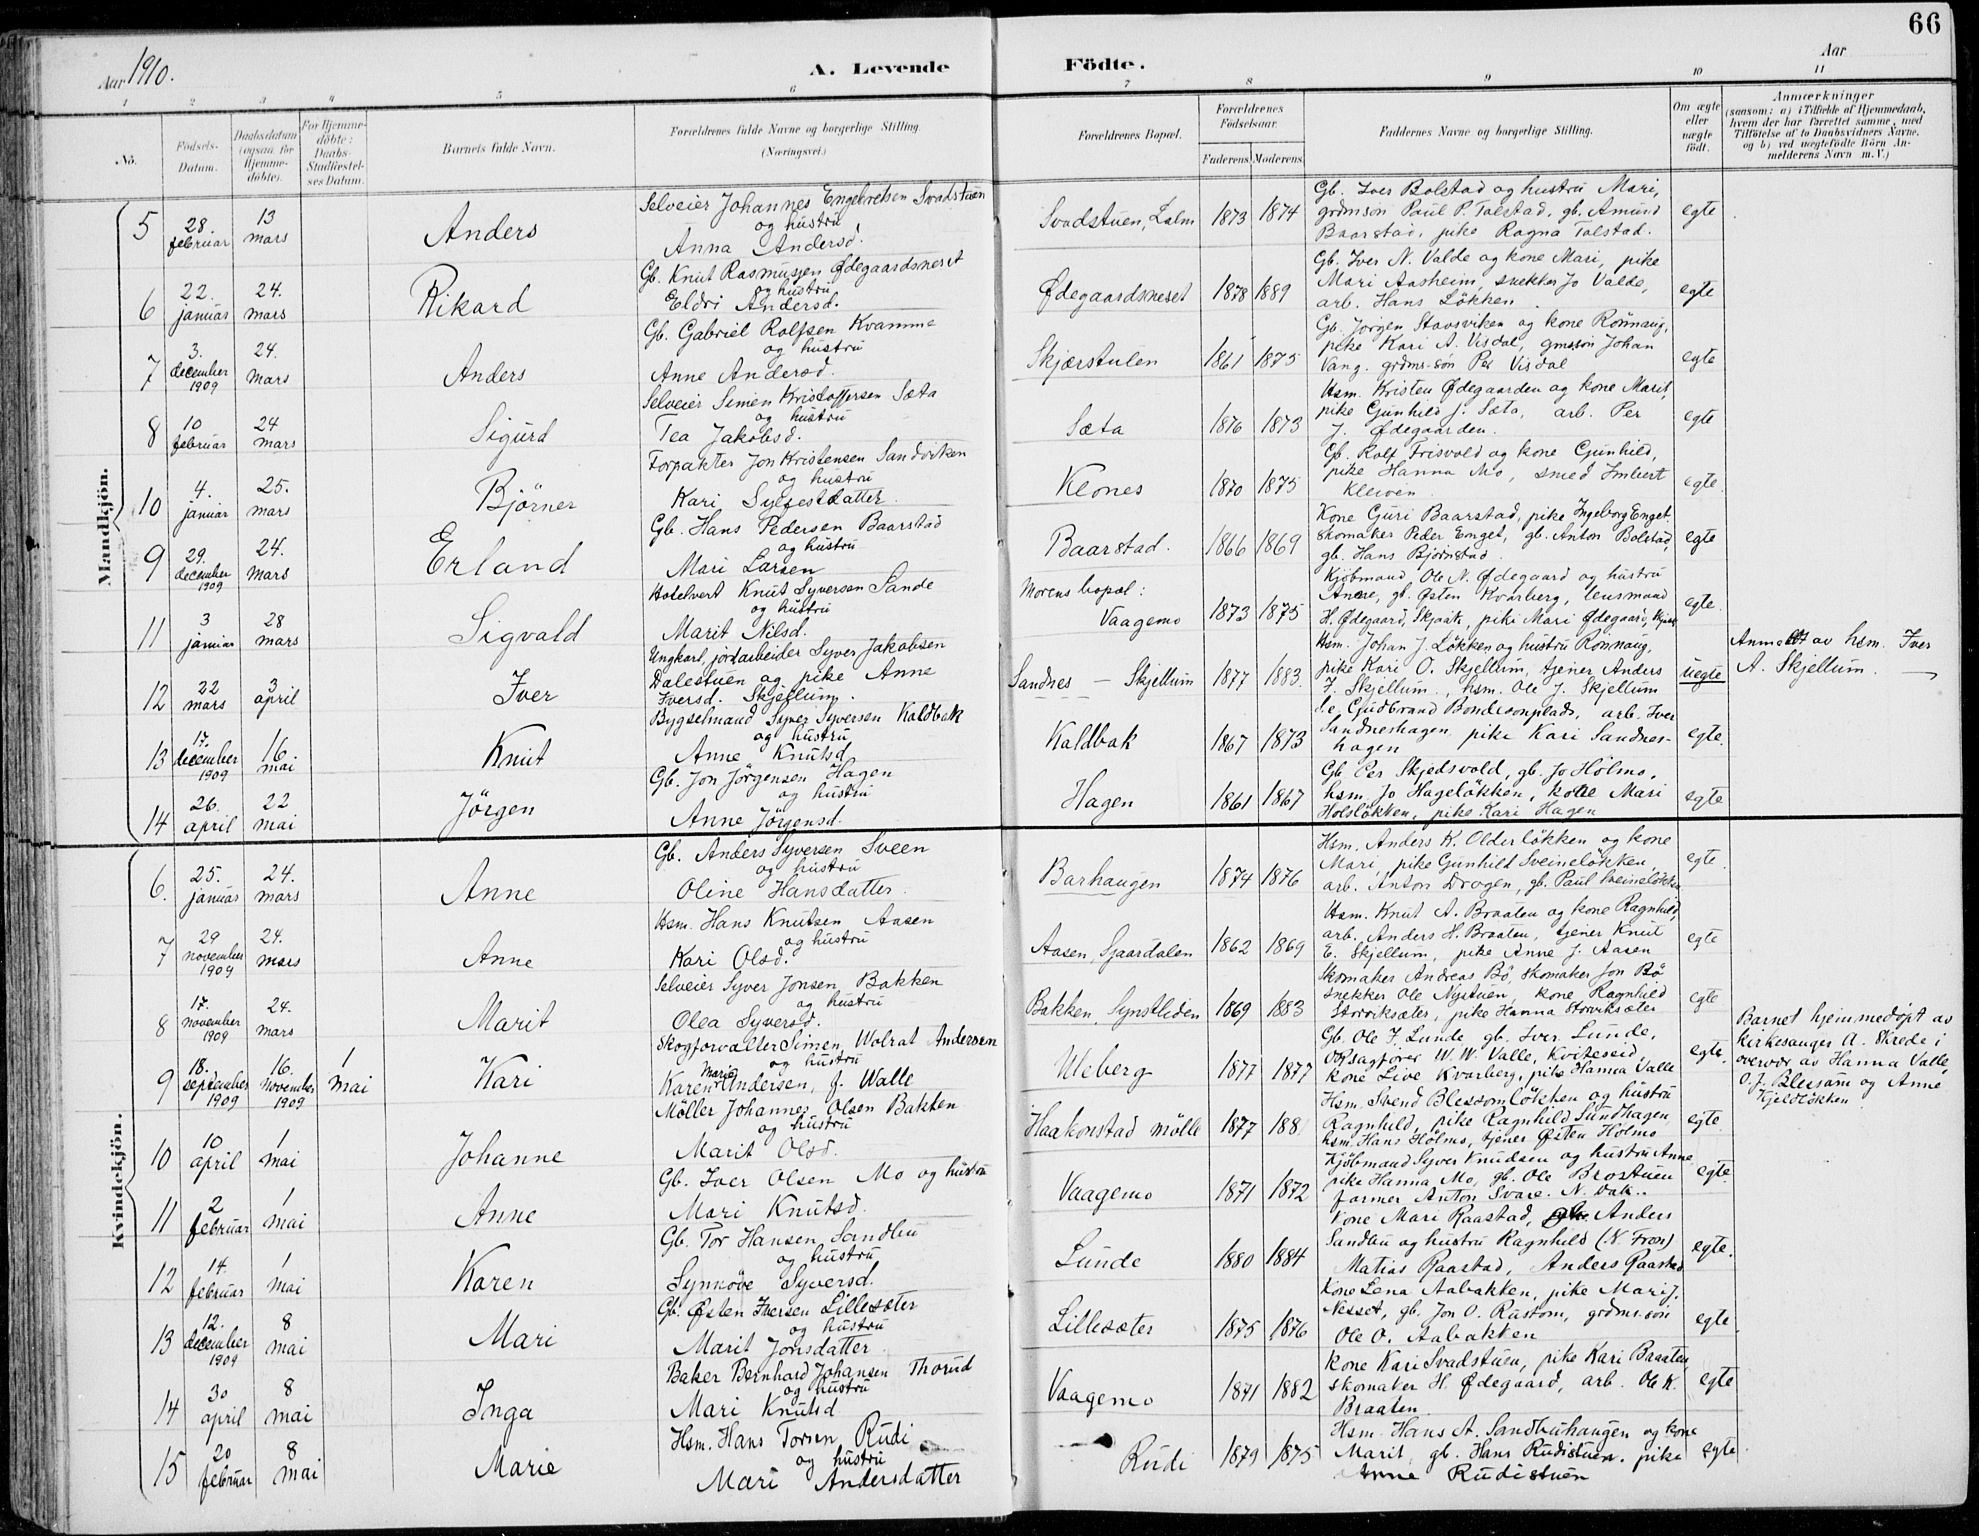 66
Aar 1910.
A. Levende Födte.
Aar
1 2 3 4 5 6 7 8 9 10 11
No.
Födsels-Datum.
Daabsdatum (ogsaa for Hjemme-döbte).
For Hjemme-döbte: Daabs-Stadfæstel-ses Datum.
Barnets fulde Navn.
Forældrenes fulde Navne og borgerlige Stilling.
(Næringsvei.)
Forældrenes Bopæl.
Forældrenes Födselsaar.
Faderens. Moderens.
Faddernes Navne og borgerlige Stilling.
Om ægte eller uægte födt.
Anmærkninger
(saasom: a) i Tilfælde af Hjemmedaab, hvem der har forrettet samme, med Tilföielse af to Daabsvidners Navne, og b) ved uægtefödte Börn An-melderens Navn m. V.)
Mandkjön.
5 28. februar 13 mars Anders Selveier Johannes Engebretsen Svadstuen og hustru Anna Andersd. Svadstuen, Lalm 1873 1874 Gb. Iver Bolstad og hustru Mari, grdmsön Paul P. Tolstad, gb. Amund Baarstad, pike Ragna Tolstad. egte
6 22. januar 24. mars Rikard Gb. Knut Rasmussen Ødegaardsneset og hustru Eldri Andersd. Ødegaardsneset 1878 1889 Gb. Iver N. Valde og kone Mari, pike Mari Aasheim, snekker Jo Valde, arb. Hans Løkken. egte
7 3. december 1909 24. mars Anders Gb. Gabriel Rolfsen Kvamme og hustru Anne Andersd. Skjærstulen 1861 1875 Gb. Jörgen Stavsviken og kone Rönnaug, pike Kari A. Visdal, gmssön Johan Vang. grdms.sön Per Visdal egte
8 10 februar 24 mars Sigurd Selveier Simen Kristoffersen Sæta og hustru Tea Jakobsd. Sæta 1876 1873 Hsm. Kristen Ødegaarden og kone Marit, pike Gunhild J. Sæta, arb. Per J. Ødegaarden. egte
10 4. januar 25. mars Björner Forpakter Jon Kristensen Sandviken og hustru Kari Sylfestdatter. Klones 1870 1875 Gb. Rolf Frisvold og kone Gunhild, pike Hanna Mo, smed Imbert Kleiven. egte
9 29. december 1909 24. mars Erland Gb. Hans Pedersen Baarstad og hustru Mari Larsen Baarstad. 1866 1869 Kone Guri Baarstad, pike Ingeborg Enget. skomaker Peder Enget, gb. Anton Bolstad, gb. Hans Bjørnstad. egte
11 3 januar 28 mars Sigvald Hotelvert Knut Syversen Sande og hustru Marit Nilsd. Morens bopæl: Vaagemo 1873 1875 Kjöbmand Ole N. Ødegaard og hustru Anne, gb. Østen Kvarberg, lensmand H. Ødegaard, Skjaak, pike Mari Ødegaard, egte.
12 22 mars 3 april Iver Ungkarl, jordarbeider Syver Jakobsen Dalestuen og pike Anne Iversd. Skjellum. Sandnes – Skjellum 1877 1883. Hsm. Johan J. Løkken og hustru Rönnaug, pike Kari O. Skjellum, tjener Anders I. Skjellum, hsm. Ole J. Skjellum uegte Anmeldt av hsm. Iver A. Skjellum.
13 17. december 1909 16. mai Knut Bygselmand Syver Syversen Kaldbak og hustru Anne Knutsd. Kaldbak 1867 1873 Gudbrand Bondesonplads, arb. Iver Sandneshagen pike Kari Sandnes-hagen egte.
14 26. april 22 mai Jörgen Gb. Jon Jörgensen Hagen og hustru Anne Jörgensd. Hagen 1861 1867 Gb. Per Skjedsvold, gb. Jo Holmo, hsm. Jo Hageløkken, kone Mari Holsløkken, pike Kari Hagen egte
Kvindekjön.
6. 25. januar 24. mars Anne Gb. Anders Syversen Sveen og hustru Oline Hansdatter. Barhaugen 1874 1876 Hsm. Anders K. Olderløkken og kone Mari, pike Gunhild Sveineløkken arb. Anton Drogen, gb. Paul Sveineløkken egte.
7 29 november 1909 24. mars Anne Hsm. Hans Knutsen Aasen og hustru Kari Olsd. Aasen, Sjaardalen 1862 1869 Hsm. Knut A. Braaten og kone Ragnhild, arb. Anders H. Braaten, tjener Knut E. Skjellum, pike Anne J. Aasen egte
8 17. november 1909 24. mars Marit Selveier Syver Jonsen Bakken og hustru Olea Syversd. Bakken, Synstliden 1869 1883 Skomaker Andreas Bö, skomaker Jon Bö snekker Ole Nystuen, kone Ragnhild Storviksæter, pike Hanna Storviksæter egte
9 18. september 1909 16. november 1909 1 mai Kari Skogforvalter Simen Wolrat Andersen og hustru Karen Marie Andersen, f. Walle Uleberg 1877 1877 Gb. Ole I. Lunde, gb. Iver Lunde, Opsagfører W. W. Valle, Kviteseid, kone Live Kvarberg, pike Hanna Valle egte. Barnet hjemmedöpt av kirkesanger A. Skrede i overvær av Hanna Valle, O. J. Blessom og Anne Kjeldløkken.
10 10 april 1 mai Johanne Möller Johannes Olsen Bakken og hustru Marit Olsd. Haakonstad mölle 1877 188 Hsm. Svend Blessomløkken og hustru Ragnhild, pike Ragnhild Sundhagen, hsm. Hans Holmo, tjener Østen Holmo egte.
11 2 februar 1 mai Anne Gb. Iver Olsen Mo og hustru Mari Knutsd. Vaagemo 1871 1872 Kjöbmand Syver Knudsen og hustru Anne pike Hanna Mo, gb. Ole Brostuen farmer Anton Svare. N. Dak.. egte.
12 14 februar 1 mai Karen Gb. Tor Hansen Sandbu og hustru Synnöve Syversd. Lunde 1880 1884 Kone Mari Raastad, Anders Sandbu og hustru Ragnhild (N. Fron) Matias Raastad, Anders Raastad egte.
13 12. december 1909 8 mai Mari Gb. Østen Iversen Lillesæter og hustru Marit Jonsdatter Lillesæter 1875 1876 Kone Lena Aabakken, pike Mari J. Nesset, gb. Jon O. Rustom, grdms.sön Ole O. Aabakken egte.
14 30 april 8 mai Inga Baker Bernhard Johansen Thorud og hustru Mari Knutsd Vaagemo 1871 1882 Kone Kari Svadstuen, pike Kari Braaten skomaker H. Ødegaard, arb. Ole K. Braaten. egte
15 20 februar 8 mai Marie Hsm. Hans Torsen Rudi og hustru Mari Andersdatter Rudi 1879 1875 Hsm. Hans A. Sandbuhaugen og kone Marit, gb. Hans Rudistuen. pike Anne Rudistuen egte